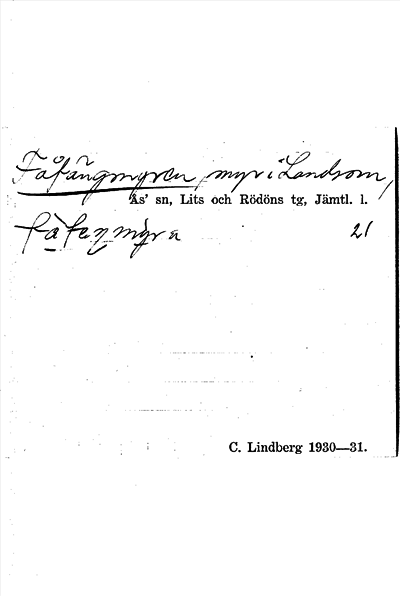 Fåfängmyren, myr i Landsom,
Ås' sn, Lits och Rödöns tg, Jämtl. l.
21
C. Lindberg 1930—31.